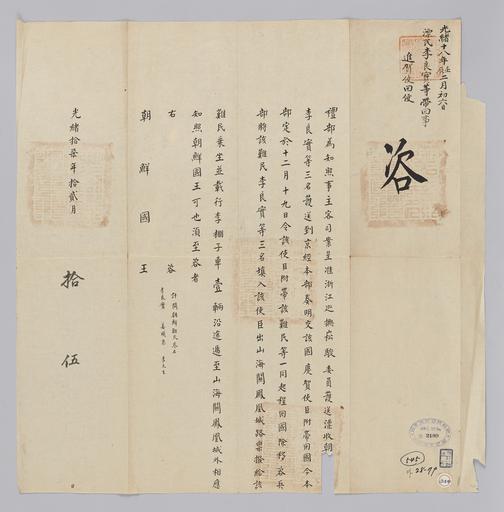 光緒十八年壬辰二月初六日
漂民李良實等帶回事
進賀使回便
咨
禮部為知照事主客司案呈准浙江巡撫崧駿委員護送漂收朝
李良實等三名護送到京經本部奏明交該國慶賀使臣附帶回國今本
部定於十二月十九日令該使臣附帶該難民等一同起程回國除移咨兵
部將該難民李良實等三名填入該使臣出山海關鳳凰城路票撥給該
難民乘坐並載行李棚子車壹輛沿途遞至山海關鳳凰城外相應
知照朝鮮國王可也須至咨者
右咨
計開朝鮮難民叁名
李良實
朝鮮國王
光緒拾柒年拾貳月
拾伍
2180
545
11.28-99